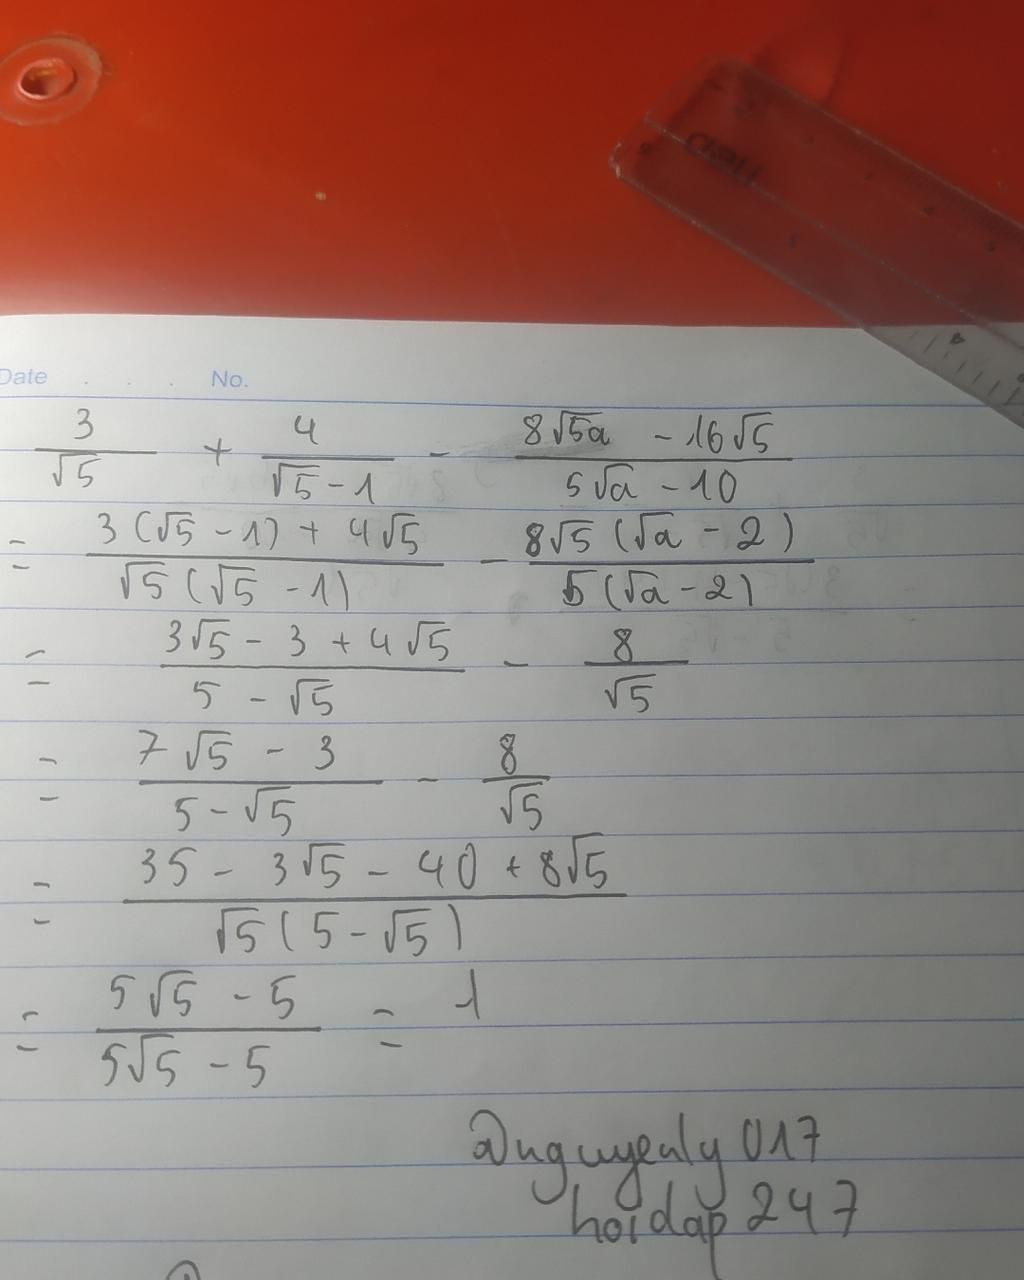 Date . . . No.
3/√5 + 4/(√5 - 1) - (8√5a - 16√5)/(5√a - 10)
= (3(√5 - 1) + 4√5)/(√5(√5 - 1)) - (8√5(√a - 2))/(5(√a - 2))
= (3√5 - 3 + 4√5)/(5 - √5) - 8/√5
= (7√5 - 3)/(5 - √5) - 8/√5
= (35 - 3√5 - 40 + 8√5)/(√5(5 - √5))
= (5√5 - 5)/(5√5 - 5) = 1
@nguyenly017
hoidap247